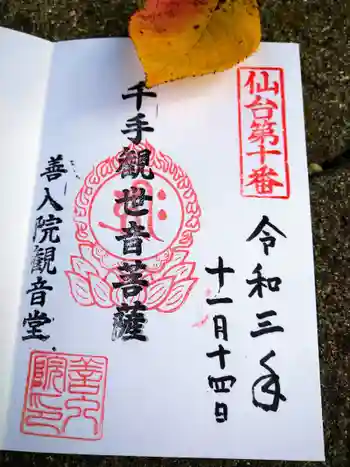 仙台第十番
令和三年
十一月十四日
千手観世音菩薩
善入院観音堂
善入院印